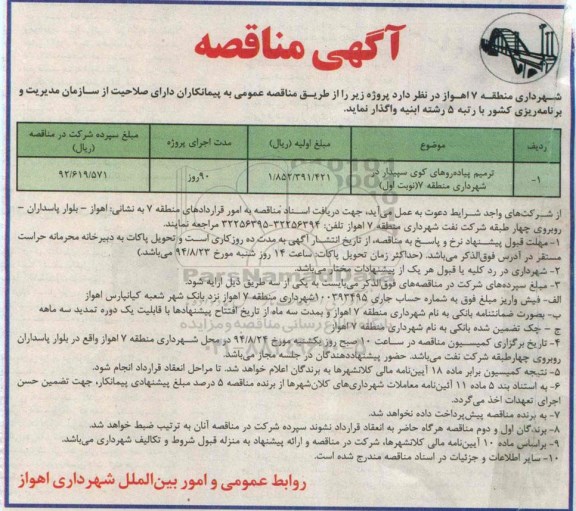 آگهی مناقصه
شهرداری منطقه ۷ اهواز در نظر دارد پروژه زیر را از طریق مناقصه عمومی به پیمانکاران دارای صلاحیت از سازمان مدیریت و
برنامه‌ریزی کشور با رتبه ۵ رشته ابنیه واگذار نماید.
ردیف موضوع مبلغ اولیه (ریال) مدت اجرای پروژه مبلغ سپرده شرکت در مناقصه (ریال)
۱- ترمیم پیاده‌روهای کوی سپیدار در شهرداری منطقه ۷(نوبت اول) ۱/۸۵۲/۳۹۱/۴۲۱ ۹۰روز ۹۲/۶۱۹/۵۷۱
از شرکت‌های واجد شرایط دعوت به عمل می‌آید، جهت دریافت اسناد مناقصه به امور قراردادهای منطقه ۷ به نشانی: اهواز - بلوار پاسداران -
روبروی چهار طبقه شرکت نفت شهرداری منطقه ۷ اهواز تلفن: ۳۲۲۵۶۳۹۴-۳۲۲۵۶۳۹۵ مراجعه نمایند.
۱-مهلت قبول پیشنهاد نرخ و پاسخ به مناقصه، از تاریخ انتشار آگهی به مدت ده روزکاری است و تحویل پاکات به دبیرخانه محرمانه حراست
مستقر در آدرس فوق‌الذکر می‌باشد. (حداکثر زمان تحویل پاکات: ساعت ۱۴ روز شنبه مورخ ۹۴/۸/۲۳ می‌باشد.)
۲- شهرداری در رد کلیه یا قبول هر یک از پیشنهادات مختار می‌باشد.
۳- مبلغ سپرده‌های شرکت در مناقصه‌های فوق‌الذکر می‌بایست به یکی از سه طریق ذیل ارایه شود.
الف- فیش واریز مبلغ فوق به شماره حساب جاری ۱۰۰۳۹۳۴۹۵شهرداری منطقه ۷ اهواز نزد بانک شهر شعبه کیانپارس اهواز
ب- بصورت ضمانتنامه بانکی به نام شهرداری منطقه ۷ اهواز و بمدت سه ماه از تاریخ افتتاح پیشنهادها با قابلیت یک دوره تمدید سه ماهه
ج - چک تضمین شده بانکی به نام شهرداری منطقه ۷ اهواز
۴- تاریخ برگزاری کمیسیون مناقصه در ساعت ۱۰ صبح روز یکشنبه مورخ ۹۴/۸/۲۴ در محل شهرداری منطقه ۷ اهواز واقع در بلوار پاسداران
روبروی چهارطبقه شرکت نفت می‌باشد. حضور پیشنهاددهندگان در جلسه مجاز می‌باشد.
۵- نتیجه کمیسیون برابر ماده ۱۸ آیین‌نامه مالی کلانشهرها به برندگان اعلام خواهد شد. تا مراحل انعقاد قرارداد انجام شود.
۶- به استناد بند ۵ ماده ۱۱ آئین‌نامه معاملات شهرداری‌های کلان‌شهرها از برنده مناقصه ۵ درصد مبلغ پیشنهادی پیمانکار، جهت تضمین حسن
اجرای تعهدات اخذ می‌گردد.
۷- به برنده مناقصه پیش‌پرداخت داده نخواهد شد.
۸- برندگان اول و دوم مناقصه هرگاه حاضر به انعقاد قرارداد نشوند سپرده شرکت در مناقصه آنان به ترتیب ضبط خواهد شد.
۹- براساس ماده ۱۰ آیین‌نامه مالی کلانشهرها، شرکت در مناقصه و ارائه پیشنهاد به منزله قبول شروط و تکالیف شهرداری می‌باشد.
۱۰- سایر اطلاعات و جزئیات در اسناد مناقصه مندرج شده است.
روابط عمومی و امور بین‌الملل شهرداری اهواز